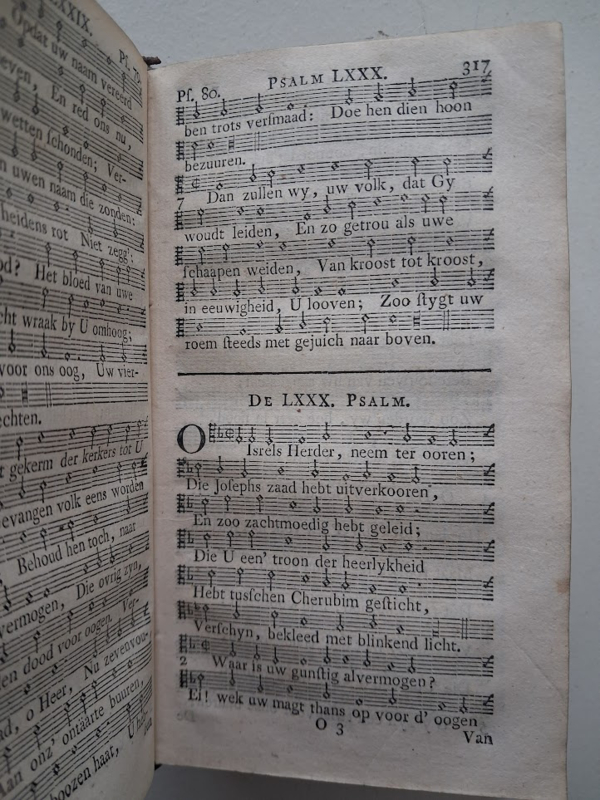 LXXIX.
Opdat uw naam vereerd
Ps. 79.
even, En red ons nu,
wetten schonden; Ver-
n uwen naam die zonden:
heidens rot Niet zegg':
od? Het bloed van uwe
cht wraak by U omhoog;
voor ons oog, Uw vier-
echten.
r gekerm der kerkers tot U
evangen volk eens worden
Behoud hen toch, naar
vermogen, Die ovrig zyn,
en dood voor oogen. Ver-
ad, o Heer, Nu zevenvou-
Aan onz' ontaarte buuren,
boozen haat,
Ps. 80. PSALM LXXX. 317
ben trots versmaad: Doe hen dien hoon
bezuuren.
7 Dan zullen wy, uw volk, dat Gy
woudt leiden, En zo getrou als uwe
schaapen weiden, Van kroost tot kroost,
in eeuwigheid, U looven; Zoo stygt uw
roem steeds met gejuich naar boven.
DE LXXX. PSALM.
O Isrels Herder, neem ter ooren;
Die Josephs zaad hebt uitverkooren,
En zoo zachtmoedig hebt geleid;
Die U een' troon der heerlykheid
Hebt tusschen Cherubim gesticht,
Verschyn, bekleed met blinkend licht.
2 Waar is uw gunstig alvermogen?
Ei! wek uw magt thans op voor d' oogen
O 3 Van